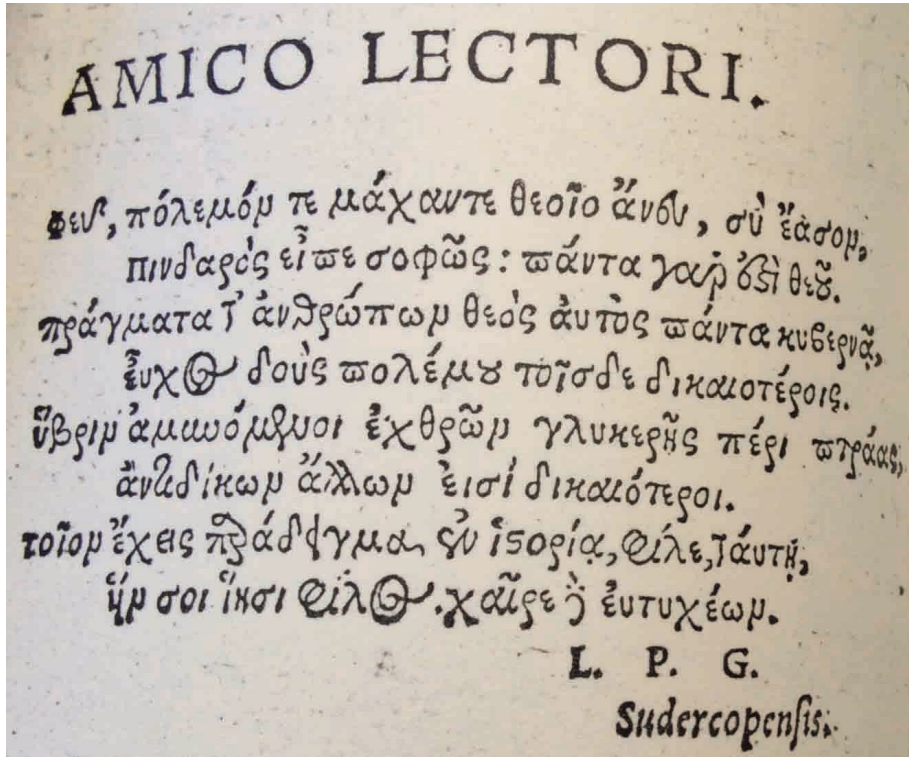 AMICO LECTORI.
φευ, πόλεμόν τε μάχαντε θεοῖο ἄνευ, σὺ ἔασον,
πινδαρὸς εἶπε σοφῶς: πάντα γαρ ἐστὶ θεοῦ.
πράγματα τ' ἀνθρώπων θεὸς ἀυτὸς πάντα κυβερνᾷ,
ἔυχος δοὺς πολέμου τοῖσδε δικαιοτέροις.
ὕβριν ἐχθρῶν γλυκερῆς πέρι
ἀντιδίκων ἄλλων ἐισί δικαιότεροι.
τοῖον ἔχεις παράδειγμα σὺν ἱστορίᾳ, φίλε, ταύτῃ,
ἥν σοι ἵησι φίλος. χαῖρε καὶ ἐυτυχέων.
L. P. G.
Sudercopensis.